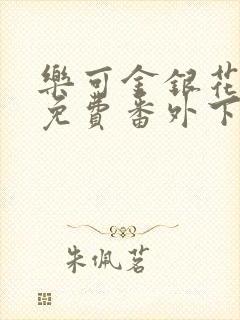 樂可金銀花
免費番外下
朱佩茗